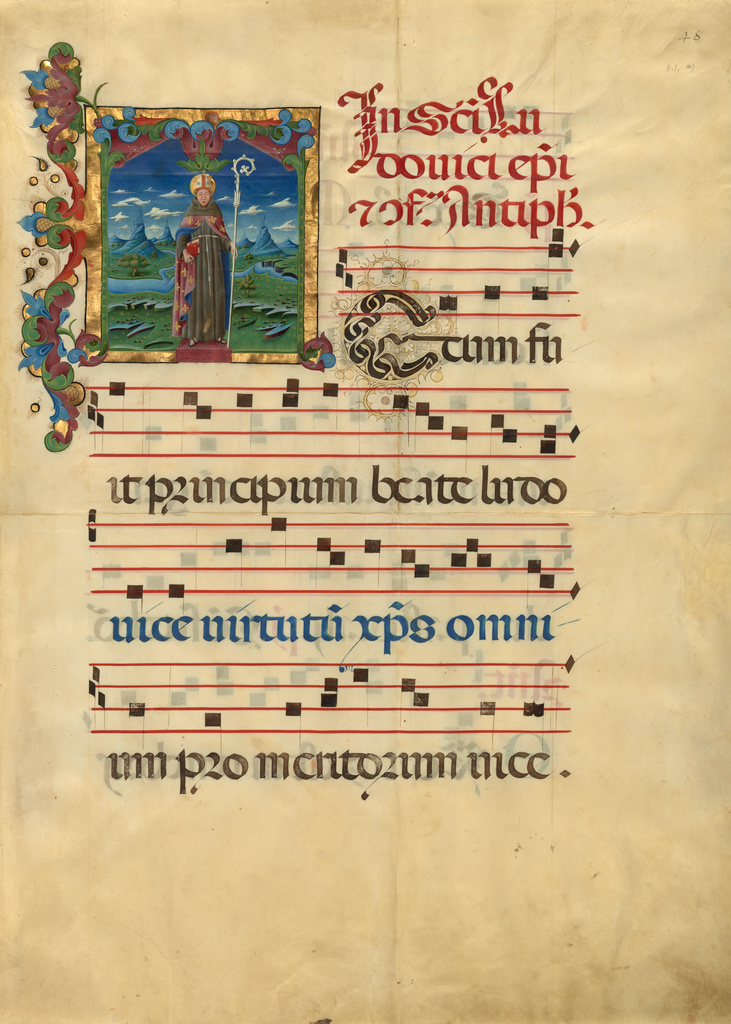 48
In Sci̅ Lu
dovici ep̅i
⁊ ꝯf̅. Antiph̅.
Ecum fu
it principium beate ludo
uice uirtutū xp̅s omni
um pro meritorum uice .